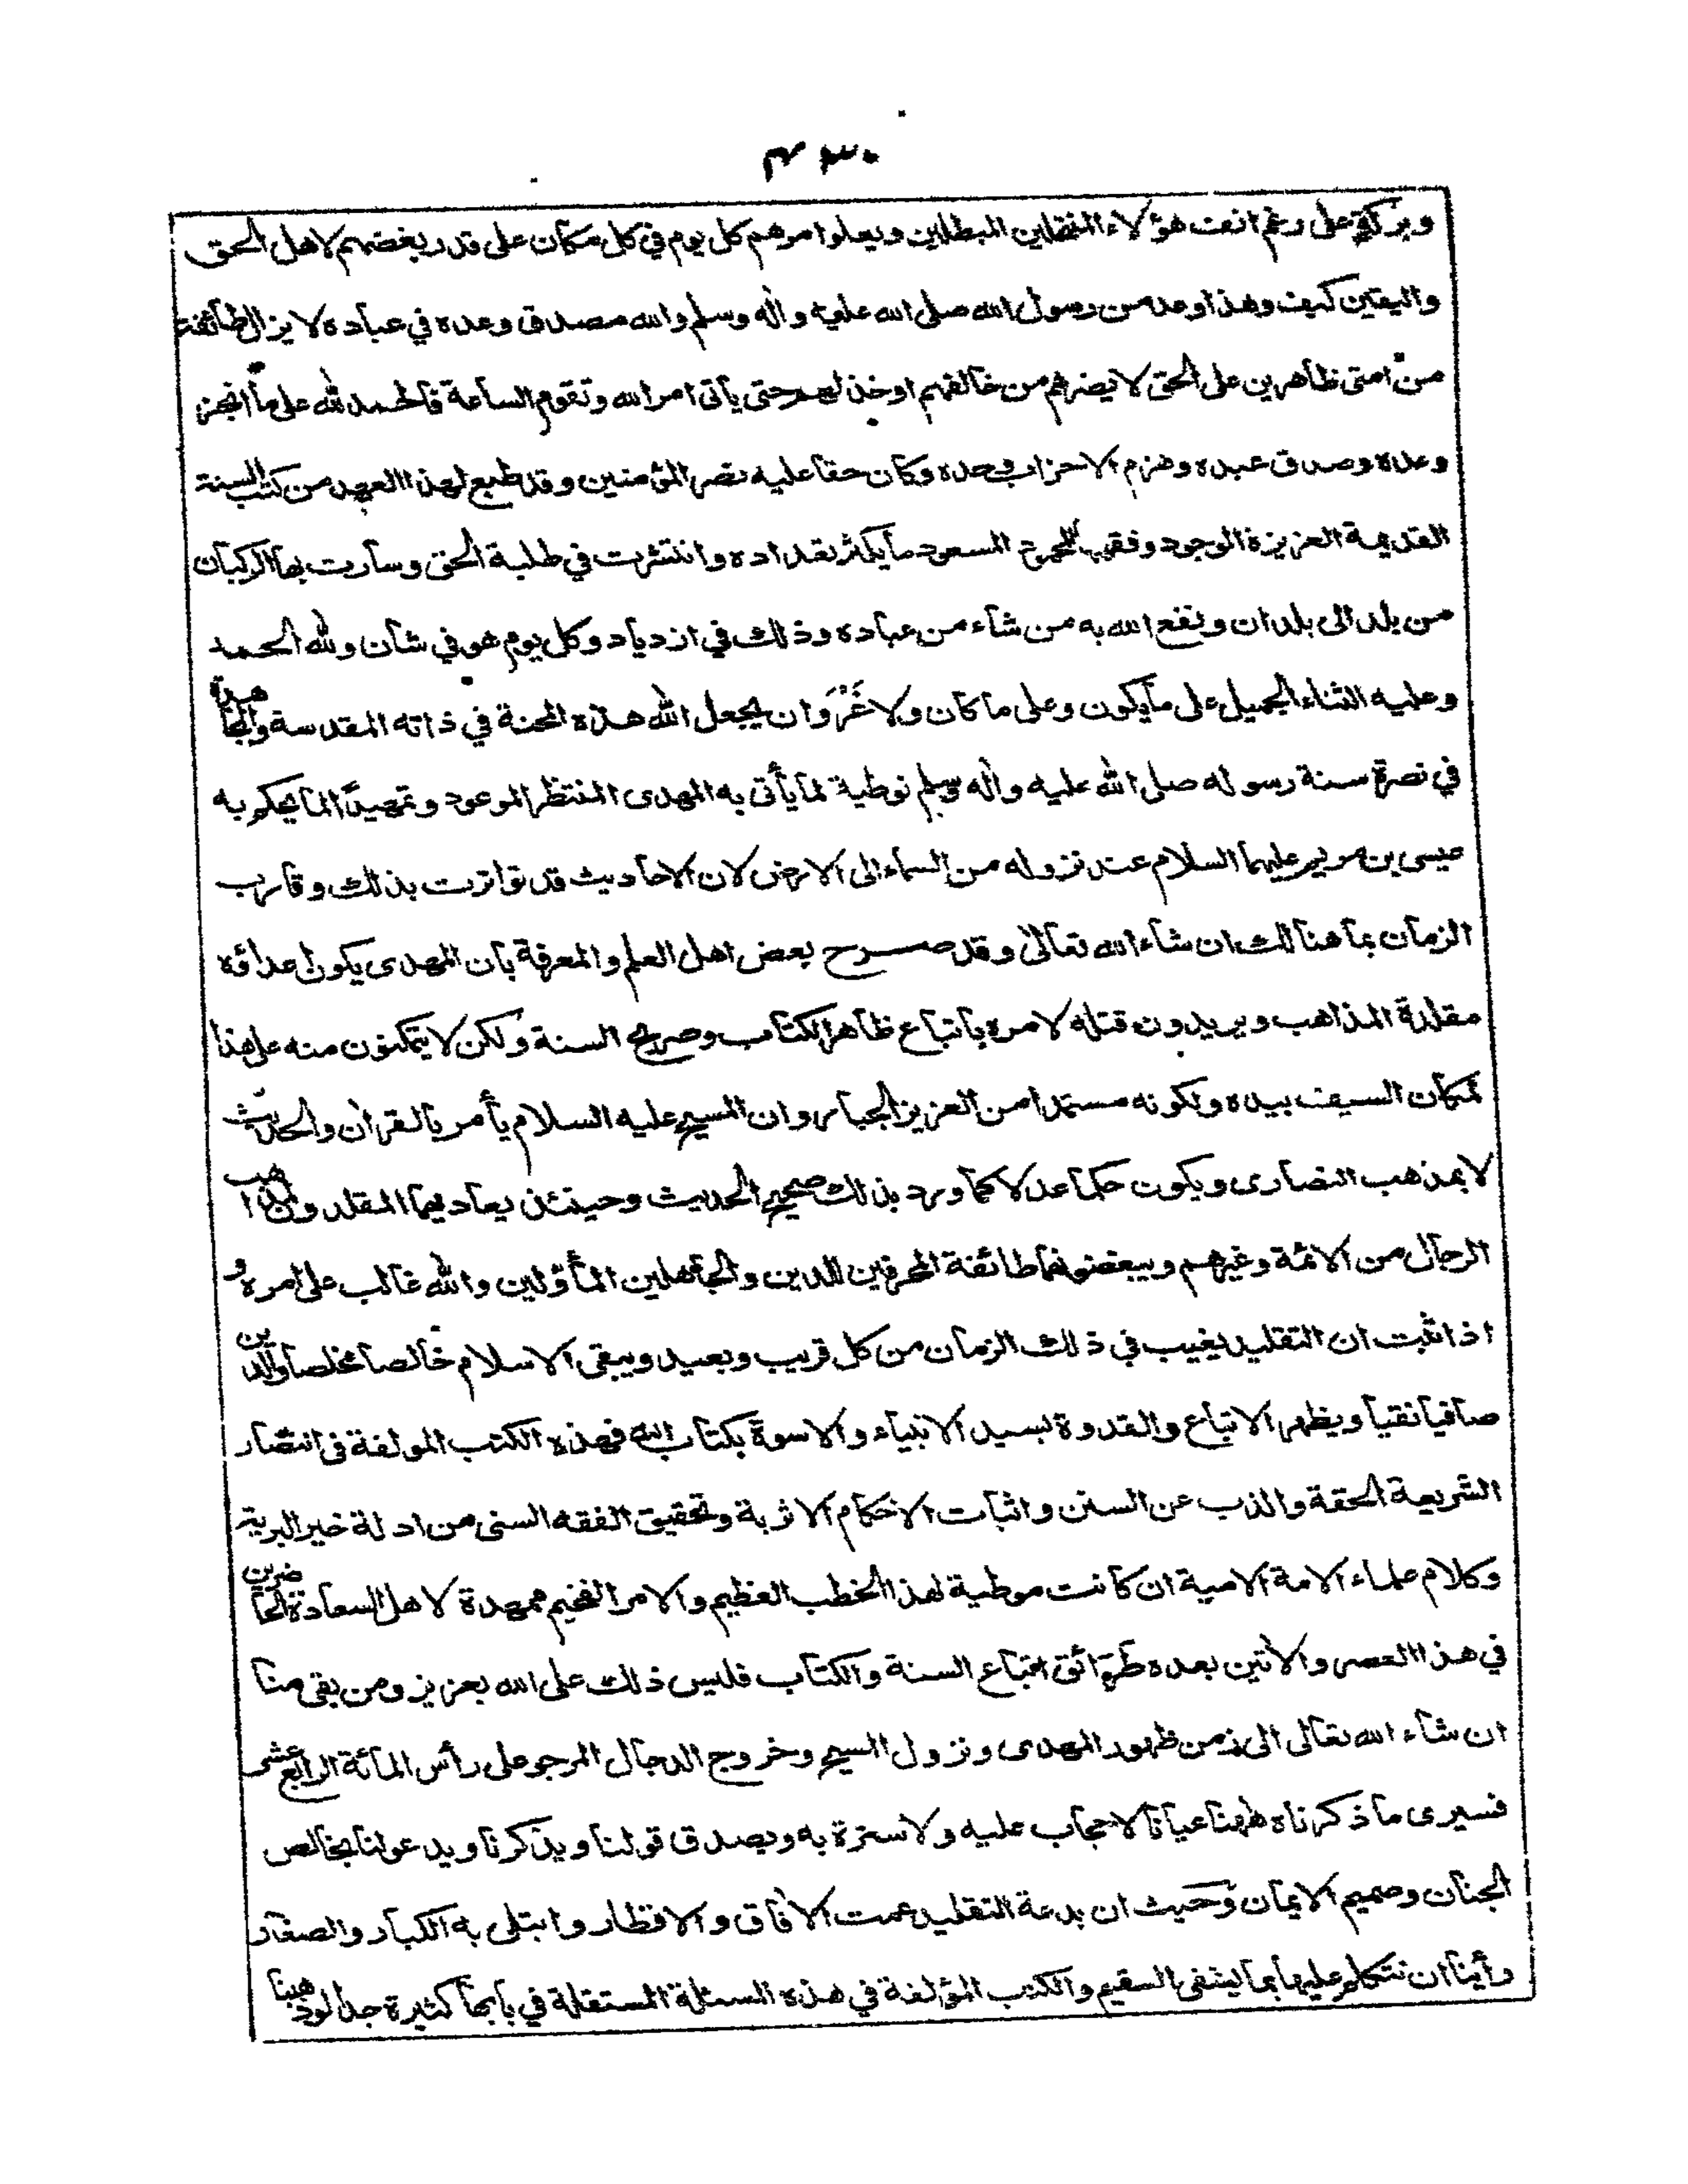 وبركة على رغم انف هؤلاء المنتحلين المبطلين ويعلوا مرهم كل يوم في كل مكان على قدر بغضهم لاهل الحق
واليقين كيف وهذا وعد من رسول الله صلى الله عليه واٰله وسلم والله مصدق وعده في عباده لا يزال طائفة
من امتى ظاهرين على الحق لا يضرهم من خالفهم او خذلهم حتى يأتى امر الله وتقوم الساعة فالحمد لله على ما انجز
وعده وصدق عبده وهزم الاحزاب وحده وكان حقا عليه نصر المؤمنين وقد طبع لهذا العهد من كتب السنة
القديمة العزيزة الوجود وفقهها المسعود ما يكثر تعداده وانتشرت في طلبة الحق وسارت بها الركبان
من بلد الى بلدان ونفع الله به من شاء من عباده وذلك في ازدياد وكل يوم هو في شان ولله الحمد
وعليه الثناء الجميل على ما يكون وعلى ما كان ولا غَرْوَ ان يجعل الله هذه المحنة في ذاته المقدسة والمجاهدة
في نصرة سنة رسوله صلى الله عليه واٰله وسلم توطية لما يأتى به المهدى المنتظر الموعود وتمهيدًا لما يحكم به
عيسى بن مريم عليهما السلام عند نزوله من السماء الى الارض لان الاحاديث قد تواترت بذلك وقارب
الزمان بما هنالك ان شاء الله تعالىٰ وقد صرح بعض اهل العلم والمعرفة بان المهدى يكون اعداؤه
مقلدة المذاهب ويريدون قتله لامره باتباع ظاهر الكتاب وصريح السنة ولكن لا يتمكنون منه على هذا
لمكان السيف بيده ولكونه مستمدا من العزيز الجبار وان المسيح عليه السلام يأمر بالقراٰن والحديث
لا بمذهب النصارى ويكون حكما عدلا كما ورد بذلك صحيح الحديث وحينئذ يعاديهما المقلدون لمذاهب
الرجال من الائمة وغيرهم ويبغضونهما طائفة المحرفين للدين والجاهلين المأوّلين والله غالب على امره و
اذا ثبت ان التقليد يغيب في ذلك الزمان من كل قريب وبعيد ويبقى الاسلام خالصا مخلصا والدين
صافيا نقيا ويظهر الاتباع والقدوة لسيد الانبياء والاسوة بكتاب الله فهذه الكتب المولفة فى انتصار
الشريعة الحقة والذب عن السنن واثبات الاحكام الاثرية وتحقيق الفقه السنى من ادلة خير البرية
وكلام علماء الامة الامية ان كانت موطية لهذا الخطب العظيم والامر الفخيم ممهدة لاهل السعادة الحاضرين
في هذا العصر والاٰتين بعده طرائق اتباع السنة والكتاب فليس ذلك على الله بعزيز ومن بقى منا
ان شاء الله تعالى الى زمن ظهور المهدى ونزول المسيح وخروج الدجال المرجو على رأس المائة الرابع عشر
فسيرى ما ذكرناه ههنا عيانا لا حجاب عليه ولا سترة به ويصدق قولنا ويذكرنا ويدعو لنا بخالص
الجنان وصميم الايمان وحيث ان بدعة التقليد عمت الاٰفاق والاقطار وابتلى به الكبار والصغار
رأينا ان نتكلم عليها بما يشفى السقيم والكتب المؤلفة في هذه المسئلة المستقلة في بابها كثيرة جدا لو ذهبنا